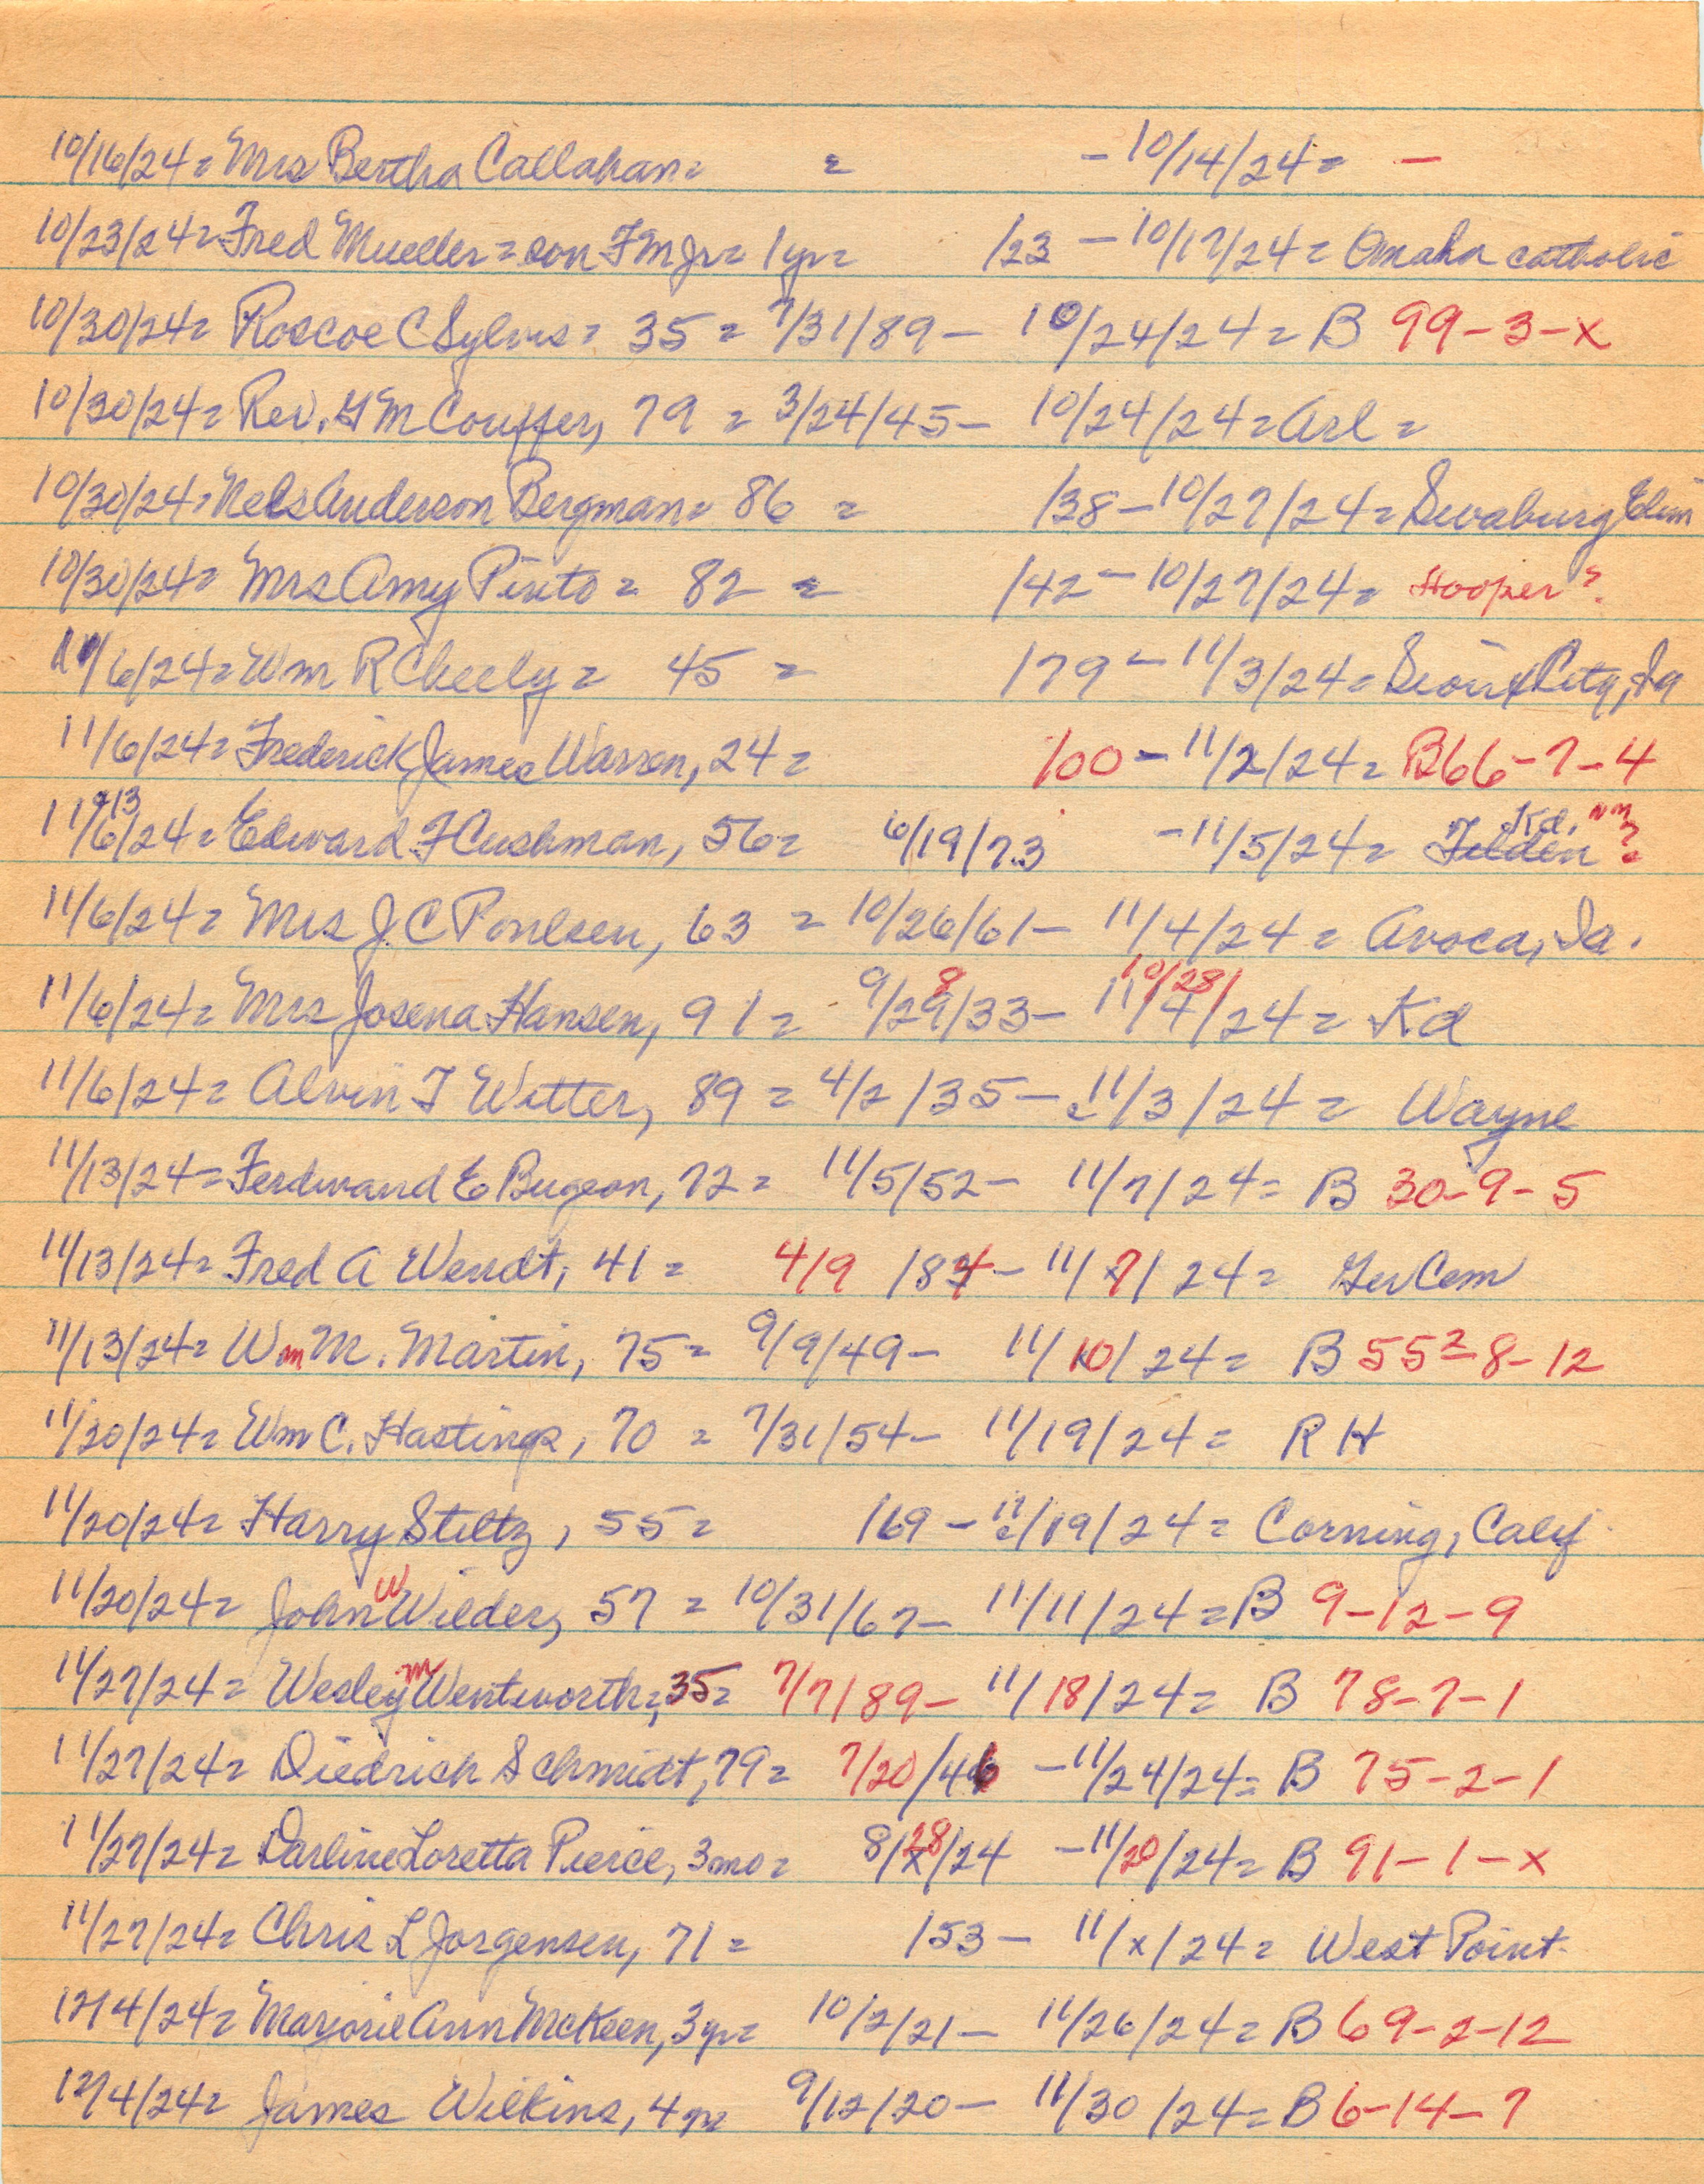 10/16/24= Mrs Bertha Callahan= = - 10/14/24= -
10/23/24= Fred Mueller= son FM Jr= 1 yr= /23 - 10/17/24= Omaha catholic
10/30/24= Roscoe C Sylvis= 35= 7/31/89- 10/24/24= B 99-3-x
10/30/24= Rev. G M Couffer, 79 = 3/24/45- 10/24/24= Arl=
10/30/24= Nels Anderson Bergman= 86 = /38-10/27/24= Swaburg Elim
10/30/24= Mrs Amy Pinto= 82 = /42-10/27/24= Hooper?
11/6/24= Wm R Cheely= 45 = /79-11/3/24= Sioux City, Ia
11/6/24= Frederick James Warren, 24= /00-11/2/24= B66-7-4
11/6/24= 913 Edward F Cushman, 56= 6/19/73 -11/5/24= Tilden Kd. nm ?
11/6/24= Mrs J C Poulsen, 63 = 10/26/61- 11/4/24= Avoca, Ia.
11/6/24= Mrs Josena Hansen, 91= 9/29/33- 8 11/4/24= 10/28/ Kd
11/6/24= Alvin T Witter, 89= 4/2/35- 11/3/24= Wayne
11/13/24= Ferdinand E Bugeon, 72= 11/5/52- 11/7/24= B 30-9-5
11/13/24= Fred A Wendt, 41= 4/9 /84- 11/7/24= Ger Cem
11/13/24= Wm M. Martin, 75= 9/9/49- 11/10/24= B 55²-8-12
11/20/24= Wm C. Hastings, 70 = 7/31/54- 11/19/24= R H
11/20/24= Harry Stiltz, 55= /69-11/19/24= Corning, Calif
11/20/24= John W Wilder, 57= 10/31/67- 11/11/24= B 9-12-9
11/27/24= Wesley M Wentworth, 35= 7/7/89- 11/18/24= B 78-7-1
11/27/24= Diedrich Schmidt, 79= 7/20/46 -11/24/24= B 75-2-1
11/27/24= Darline Loretta Pierce, 3mo= 8/28/24 -11/20/24= B 91-1-x
11/27/24= Chris L Jorgensen, 71= /53- 11/x/24= West Point
12/4/24= Marjorie Ann McKeen, 3yr= 10/2/21- 11/26/24= B 69-2-12
12/4/24= James Wilkins, 4yr= 9/12/20- 11/30/24= B 6-14-7